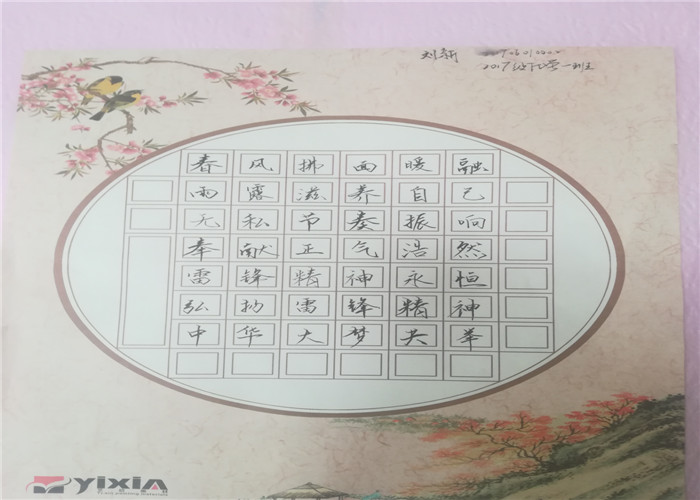 2017
一班
春风拂面暖融
雨露滋养自己
无私节奏振响
奉献正气浩然
雷锋精神永恒
弘扬雷锋精神
中华大梦共举
YIXIN